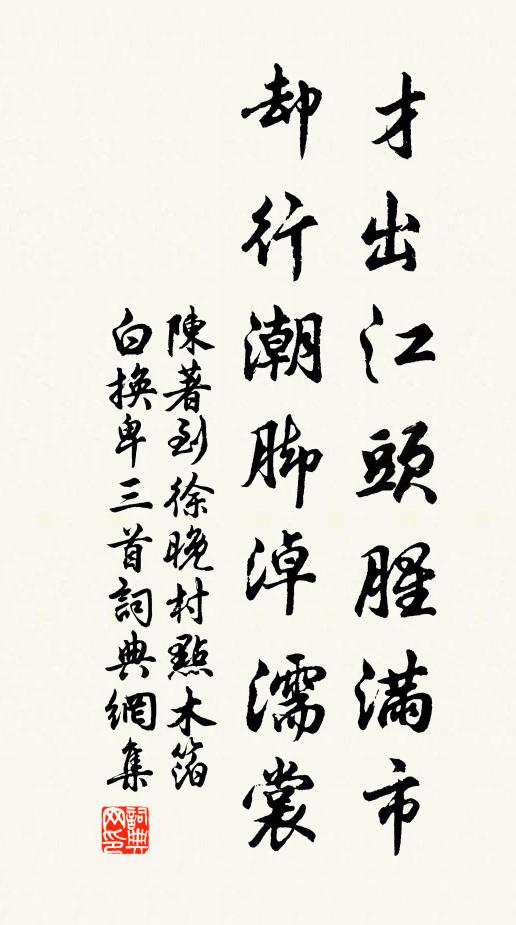 才出江頭腥滿市
却行潮脚淖濡裳
陳著到徐晚村點木箔
白換卑三首詞典網集
詞典網印